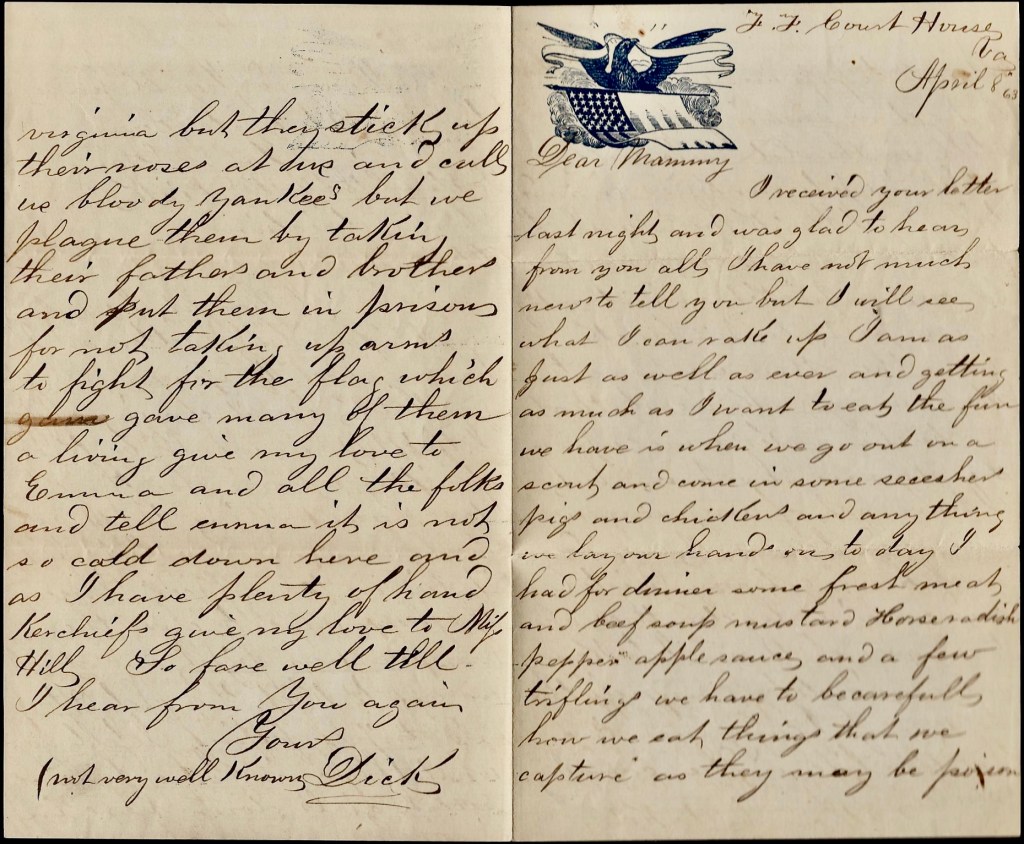 F. F. Court House
Va
April 8th 63
Dear Mammy
I received your letter
last night and was glad to hear
from you all I have not much
news to tell you but I will see
what I can rake up I am as
just as well as ever and getting
as much as I want to eat the fun
we have is when we go out on a
scout and come in some secesher
pigs and chickens and any thing
we lay our hands on to day I
had for dinner some fresh meat
and beef soup mustard Horseradish
pepper apple sauce and a few
triflings we have to be carefull
how we eat things that we
capture as they may be poison
virginia but they stick up
their noses at us and call
us bloody Yankees but we
plague them by takin
their fathers and brothers
and put them in prison
for not taking up arms
to fight for the flag which
gave many of them
a living give my love to
Emma and all the folks
and tell emma it is not
so cold down here and
as I have plenty of hand
Kerchiefs give my love to
Hill So fare well till
I hear from You again
Yours
(not very well Known Dick